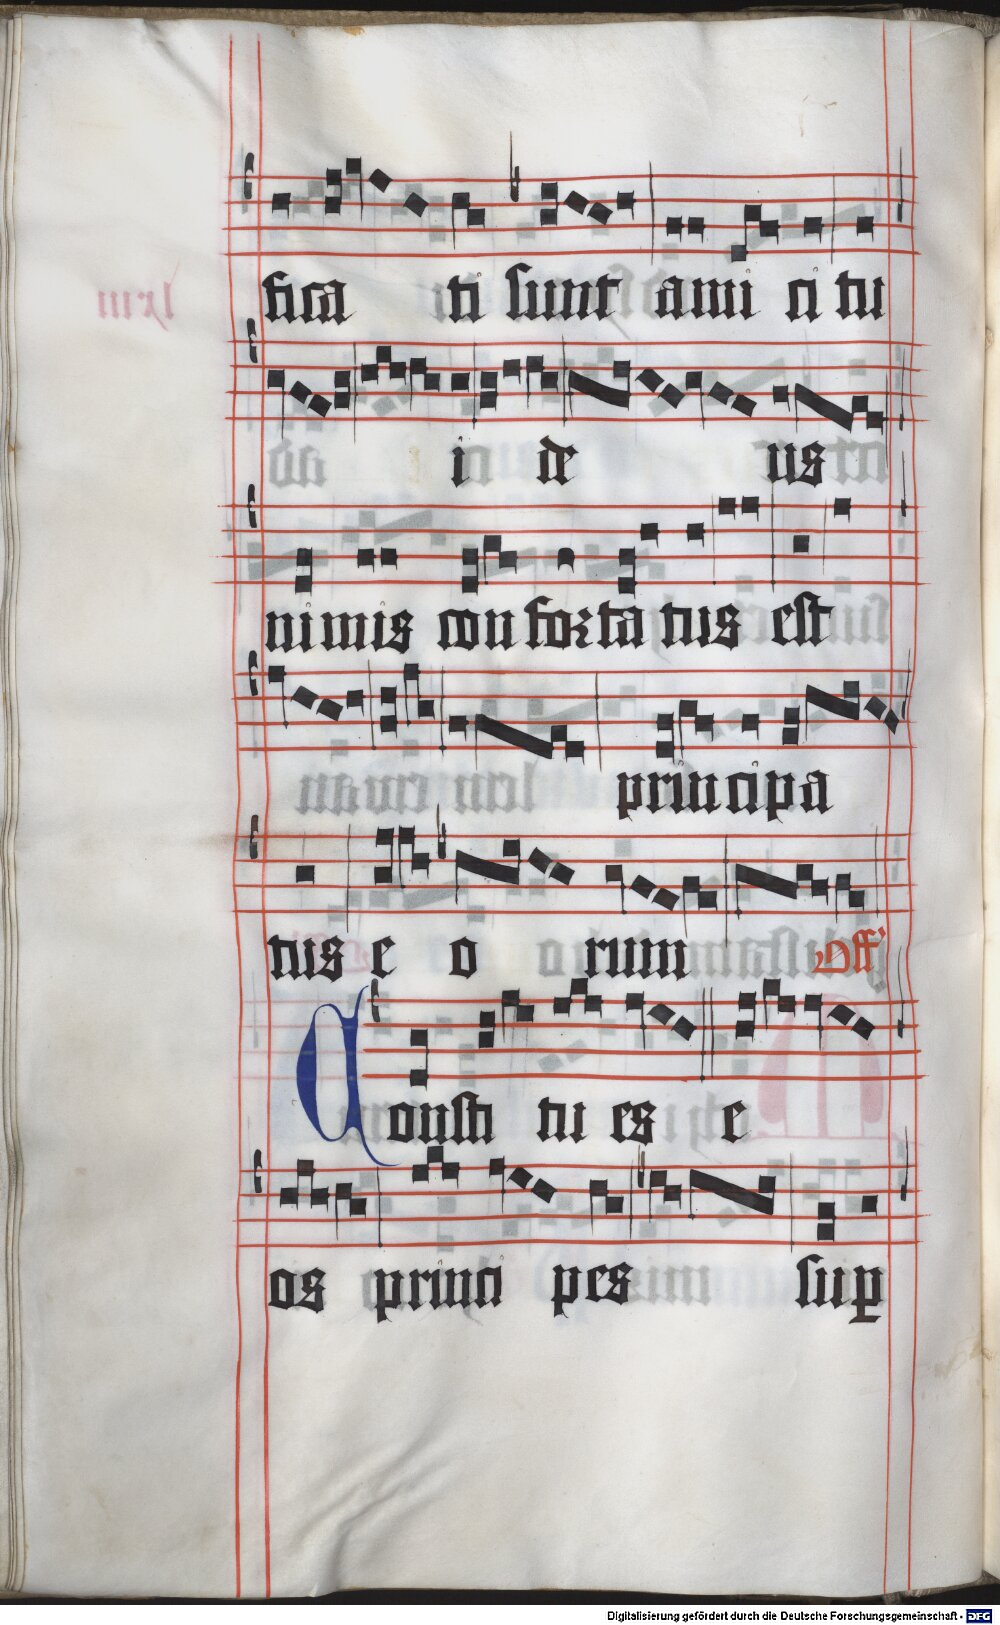 fica ti sunt ami ci tu
i de us
nimis con forta tus est
principa
tus e o rum Off'
Consti tu es e
os princi pes sup
Digitalisierung gefördert durch die Deutsche Forschungsgemeinschaft - DFG